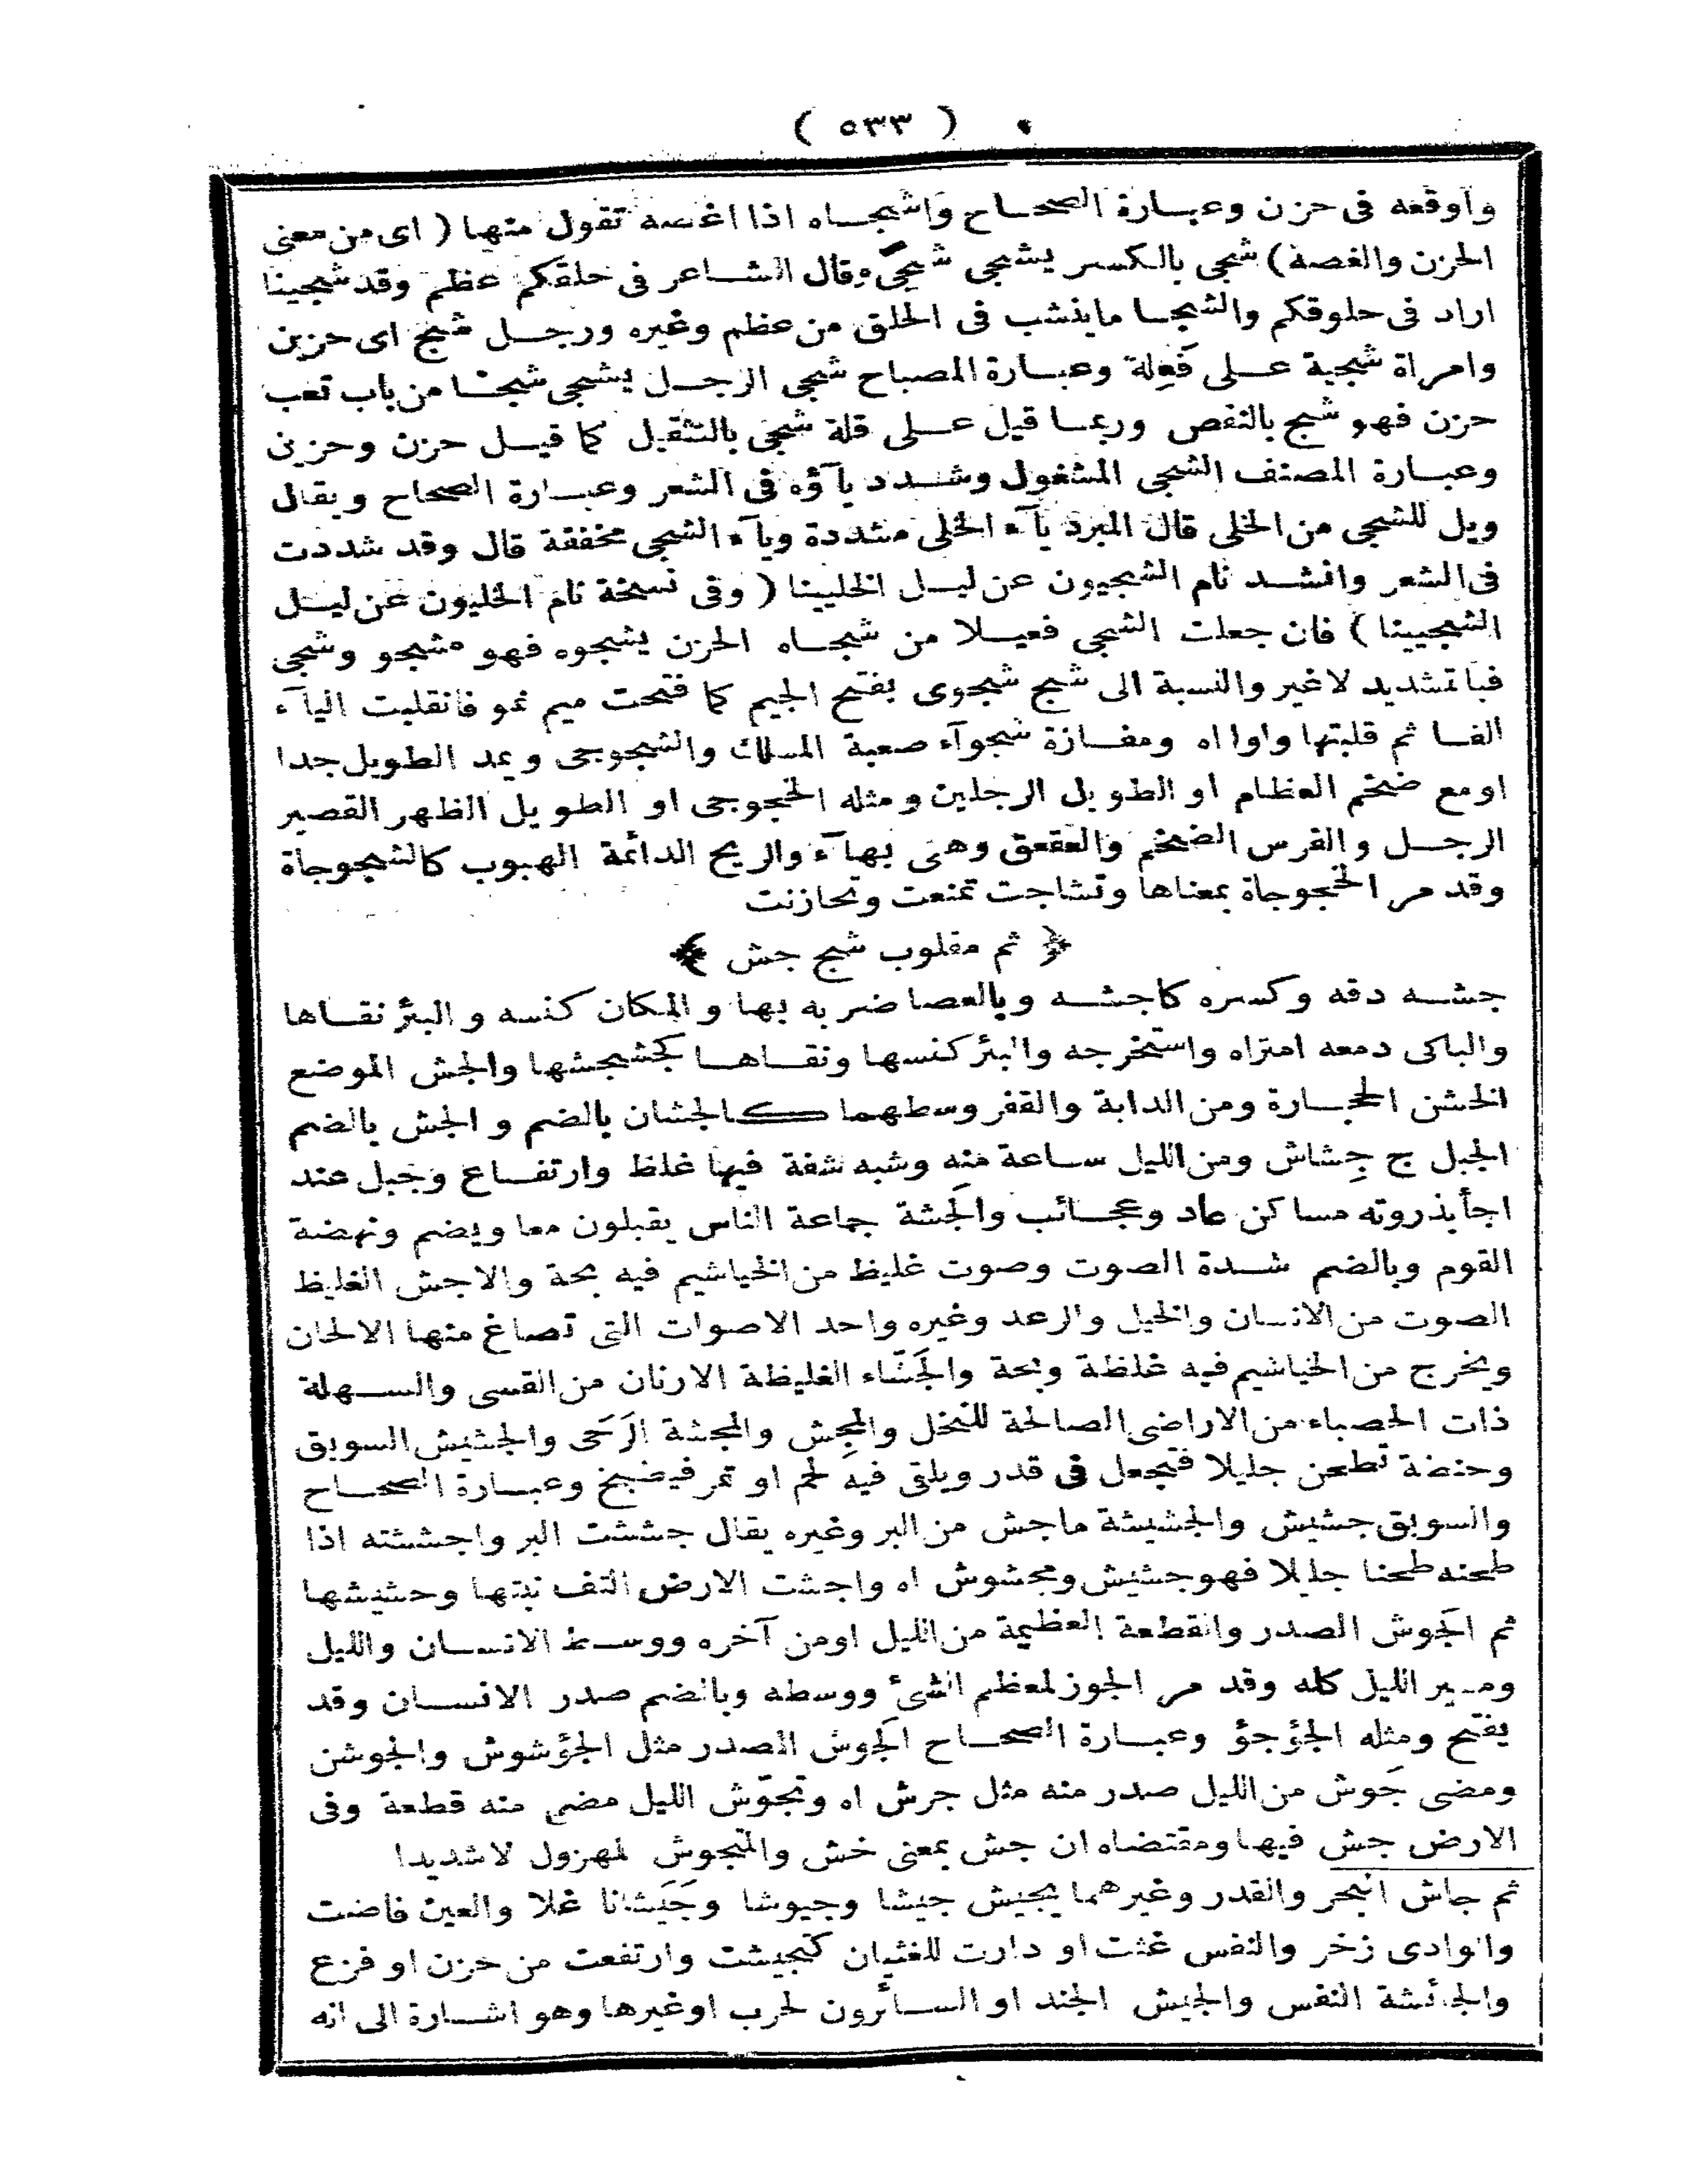 ( ٥٣٣ )
واوقعه فى حزن وعبارة الصحاح واشجاه اذا اغصه تقول منها ( اى من معنى
الحزن والغصة ) شجى بالكسر يشجى شجًى وقال الشاعر فى حلقكم عظم وقد شجينا
اراد فى حلوقكم والشجا ما ينشب فى الحلق من عظم وغيره ورجل شج اى حزين
وامراة شجية على فَعِلة وعبارة المصباح شجى الرجل يشجى شجا من باب تعب
حزن فهو شج بالنقص وربما قيل على قلة شجى بالتثقيل كما قيل حزن وحزين
وعبارة المصنف الشجى المشغول وشدد يآؤه فى الشعر وعبارة الصحاح ويقال
ويل للشجى من الخلى قال المبرد يآء الخلى مشددة ويآء الشجى مخففة قال وقد شددت
فى الشعر وانشد نام الشجيون عن ليل الخلينا ( وفى نسخة نام الخليون عن ليل
الشجيينا ) فان جعلت الشجى فعيلا من شجاه الحزن يشجوه فهو مشجو وشجى
فبالتشديد لاغير والنسبة الى شج شجوى بفتح الجيم كما فتحت ميم نمو فانقلبت اليآء
الفا ثم قلبتها واوا اه ومفازة شجوآء صعبة المسلك والشجوجى ويمد الطويل جدا
اومع ضخم العظام او الطويل الرجلين ومثله الخجوجى او الطويل الظهر القصير
الرجل والفرس الضخم والعقعق وهى بهآء والريح الدائمة الهبوب كالشجوجاة
وقد مر الخجوجاة بمعناها وتشاجت تمنعت وتحازنت
﴿ ثم مقلوب شج جش ﴾
جشه دقه وكسره كاجشه وبالعصا ضربه بها والمكان كنسه والبئر نقاها
والباكى دمعه امتراه واستخرجه والبئر كنسها ونقاها كجشجشها والجش الموضع
الخشن الحجارة ومن الدابة والقفر وسطهما كالجشان بالضم والجش بالضم
الجبل ج جِشاش ومن الليل ساعة منه وشبه شفة فيها غلظ وارتفاع وجبل عند
اجأ بذروته مساكن عاد وعجائب والجَشة جماعة الناس يقبلون معا ويضم ونهضة
القوم وبالضم شدة الصوت وصوت غليظ من الخياشيم فيه بحة والاجش الغليظ
الصوت من الانسان والخيل والرعد وغيره واحد الاصوات التى تصاغ منها الالحان
ويخرج من الخياشيم فيه غلظة وبحة والجَشّاء الغليظة الارنان من القسى والسهلة
ذات الحصباء من الاراضى الصالحة للنخل والمِجش والمجشة الرَحَى والجشيش السويق
وحنطة تطحن جليلا فتجعل فى قدر ويلقى فيه لحم او تمر فيضبخ وعبارة الصحاح
والسويق جشيش والجشيشة ماجش من البر وغيره يقال جششت البر واجششته اذا
طحنه طحنا جليلا فهو جشيش ومجشوش اه واجشت الارض التف نبتها وحشيشها
ثم الجَوش الصدر والقطعة العظيمة من الليل اومن آخره ووسط الانسان والليل
ومسير الليل كله وقد مر الجوز لمعظم الشئ ووسطه وبالضم صدر الانسان وقد
يفتح ومثله الجؤجؤ وعبارة الصحاح الجَوش الصدر مثل الجؤشوش والجوشن
ومضى جَوش من الليل صدر منه مثل جرش اه وتجوّش الليل مضى منه قطعة وفى
الارض جش فيها ومقتضاه ان جش بمعنى خش والمتجوش لمهزول لاشديدا
ثم جاش البحر والقدر وغيرهما يجيش جيشا وجيوشا وجَيَشانا غلا والعين فاضت
والوادى زخر والنفس غثت او دارت للغثيان كتجيشت وارتفعت من حزن او فزع
والجائشة النفس والجيش الجند او السائرون لحرب اوغيرها وهو اشارة الى انه